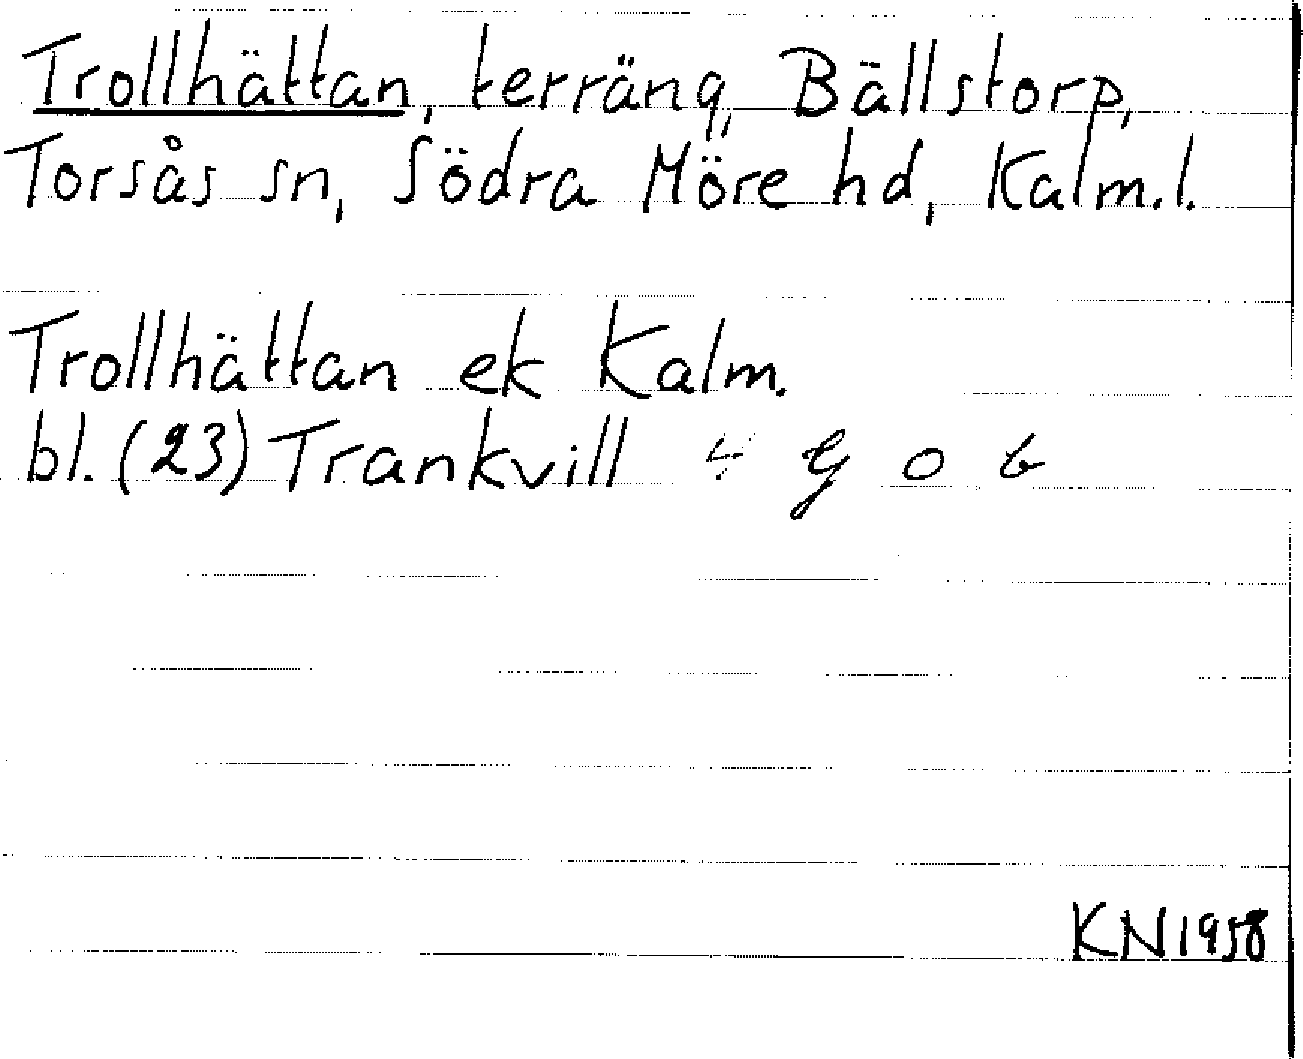 Trollhättan, terräng, Bällstorp,
Torsås sn, Södra Möre hd, Kalm.l.
Trollhättan ek Kalm.
bl. (23) Trankvill 4 g o b
KN1958